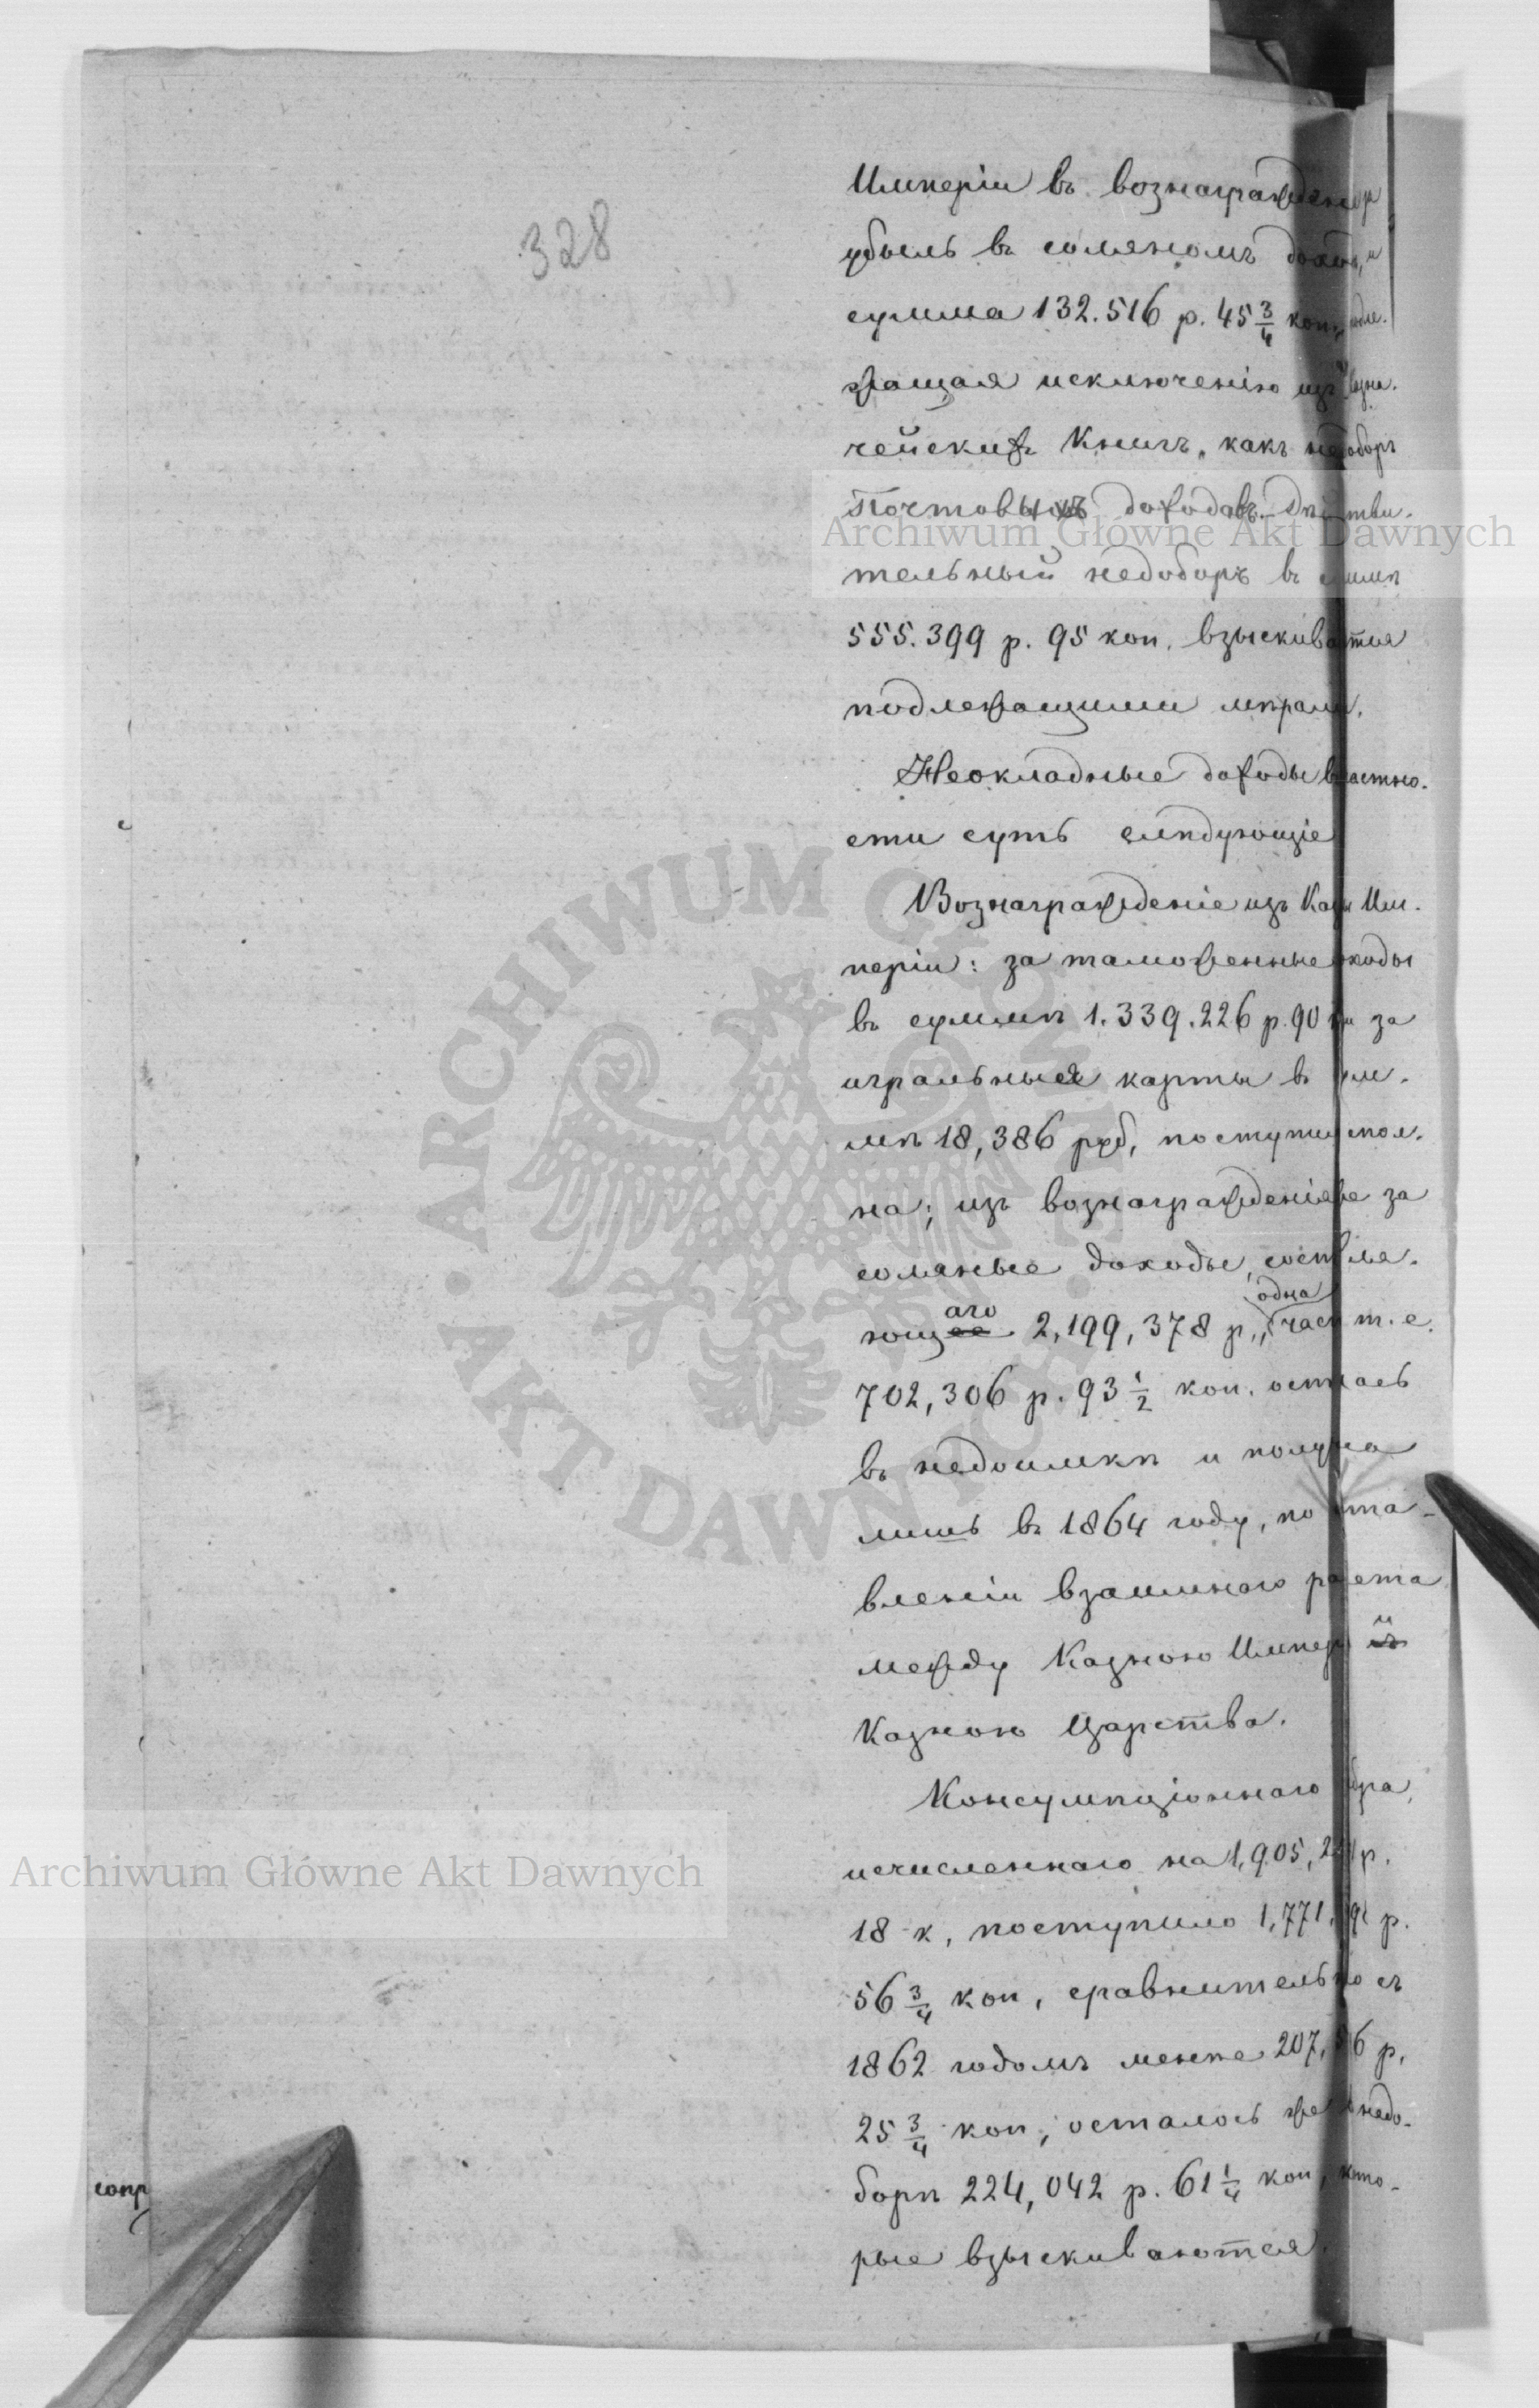 328
Имперіи въ вознагражден
убыль въ соляномъ доход, и
сумма 132.516 р. 45 3/4 коп., подле-
жащая исключенію изъ Казна-
чейскихъ Книгъ, какъ недоборъ
Почтовымъ доходовъ. Дѣйстви-
тельный недоборъ въ суммѣ
555.399 р. 95 коп. взыскивается
подлежащими мѣрами.
Неокладные доходы в частно-
сти суть слѣдующіе
Вознагражденіе изъ Казны Им-
періи: за таможенные доходы
въ суммѣ 1.339.226 р. 90 за
игральныя карты въ сум-
мѣ 18,386 руб, поступи спол-
на; изъ вознагражденія же за
соляные доходы, составля-
ющаго 2,199,378 р., одна часть т. е.
702,306 р. 93 1/2 коп. осталась
въ недоимкѣ и получена
лишь въ 1864 году, по соста-
вленіи взаимнаго расчета
между Казною Имперіи и
Казною Царства.
Консумпціоннаго сбора,
исчисленнаго на 1,905, р.
18 к, поступило 1,771, р.
56 3/4 коп, сравнительно съ
1862 годомъ менѣе 207, р.
25 3/4 коп; осталось же недо-
борѣ 224,042 р. 61 1/4 коп, кото-
рые взыскиваются.
сопр
Archiwum Główne Akt Dawnych
Archiwum Główne Akt Dawnych
ARCHIWUM GŁÓWNE AKT DAWNYCH